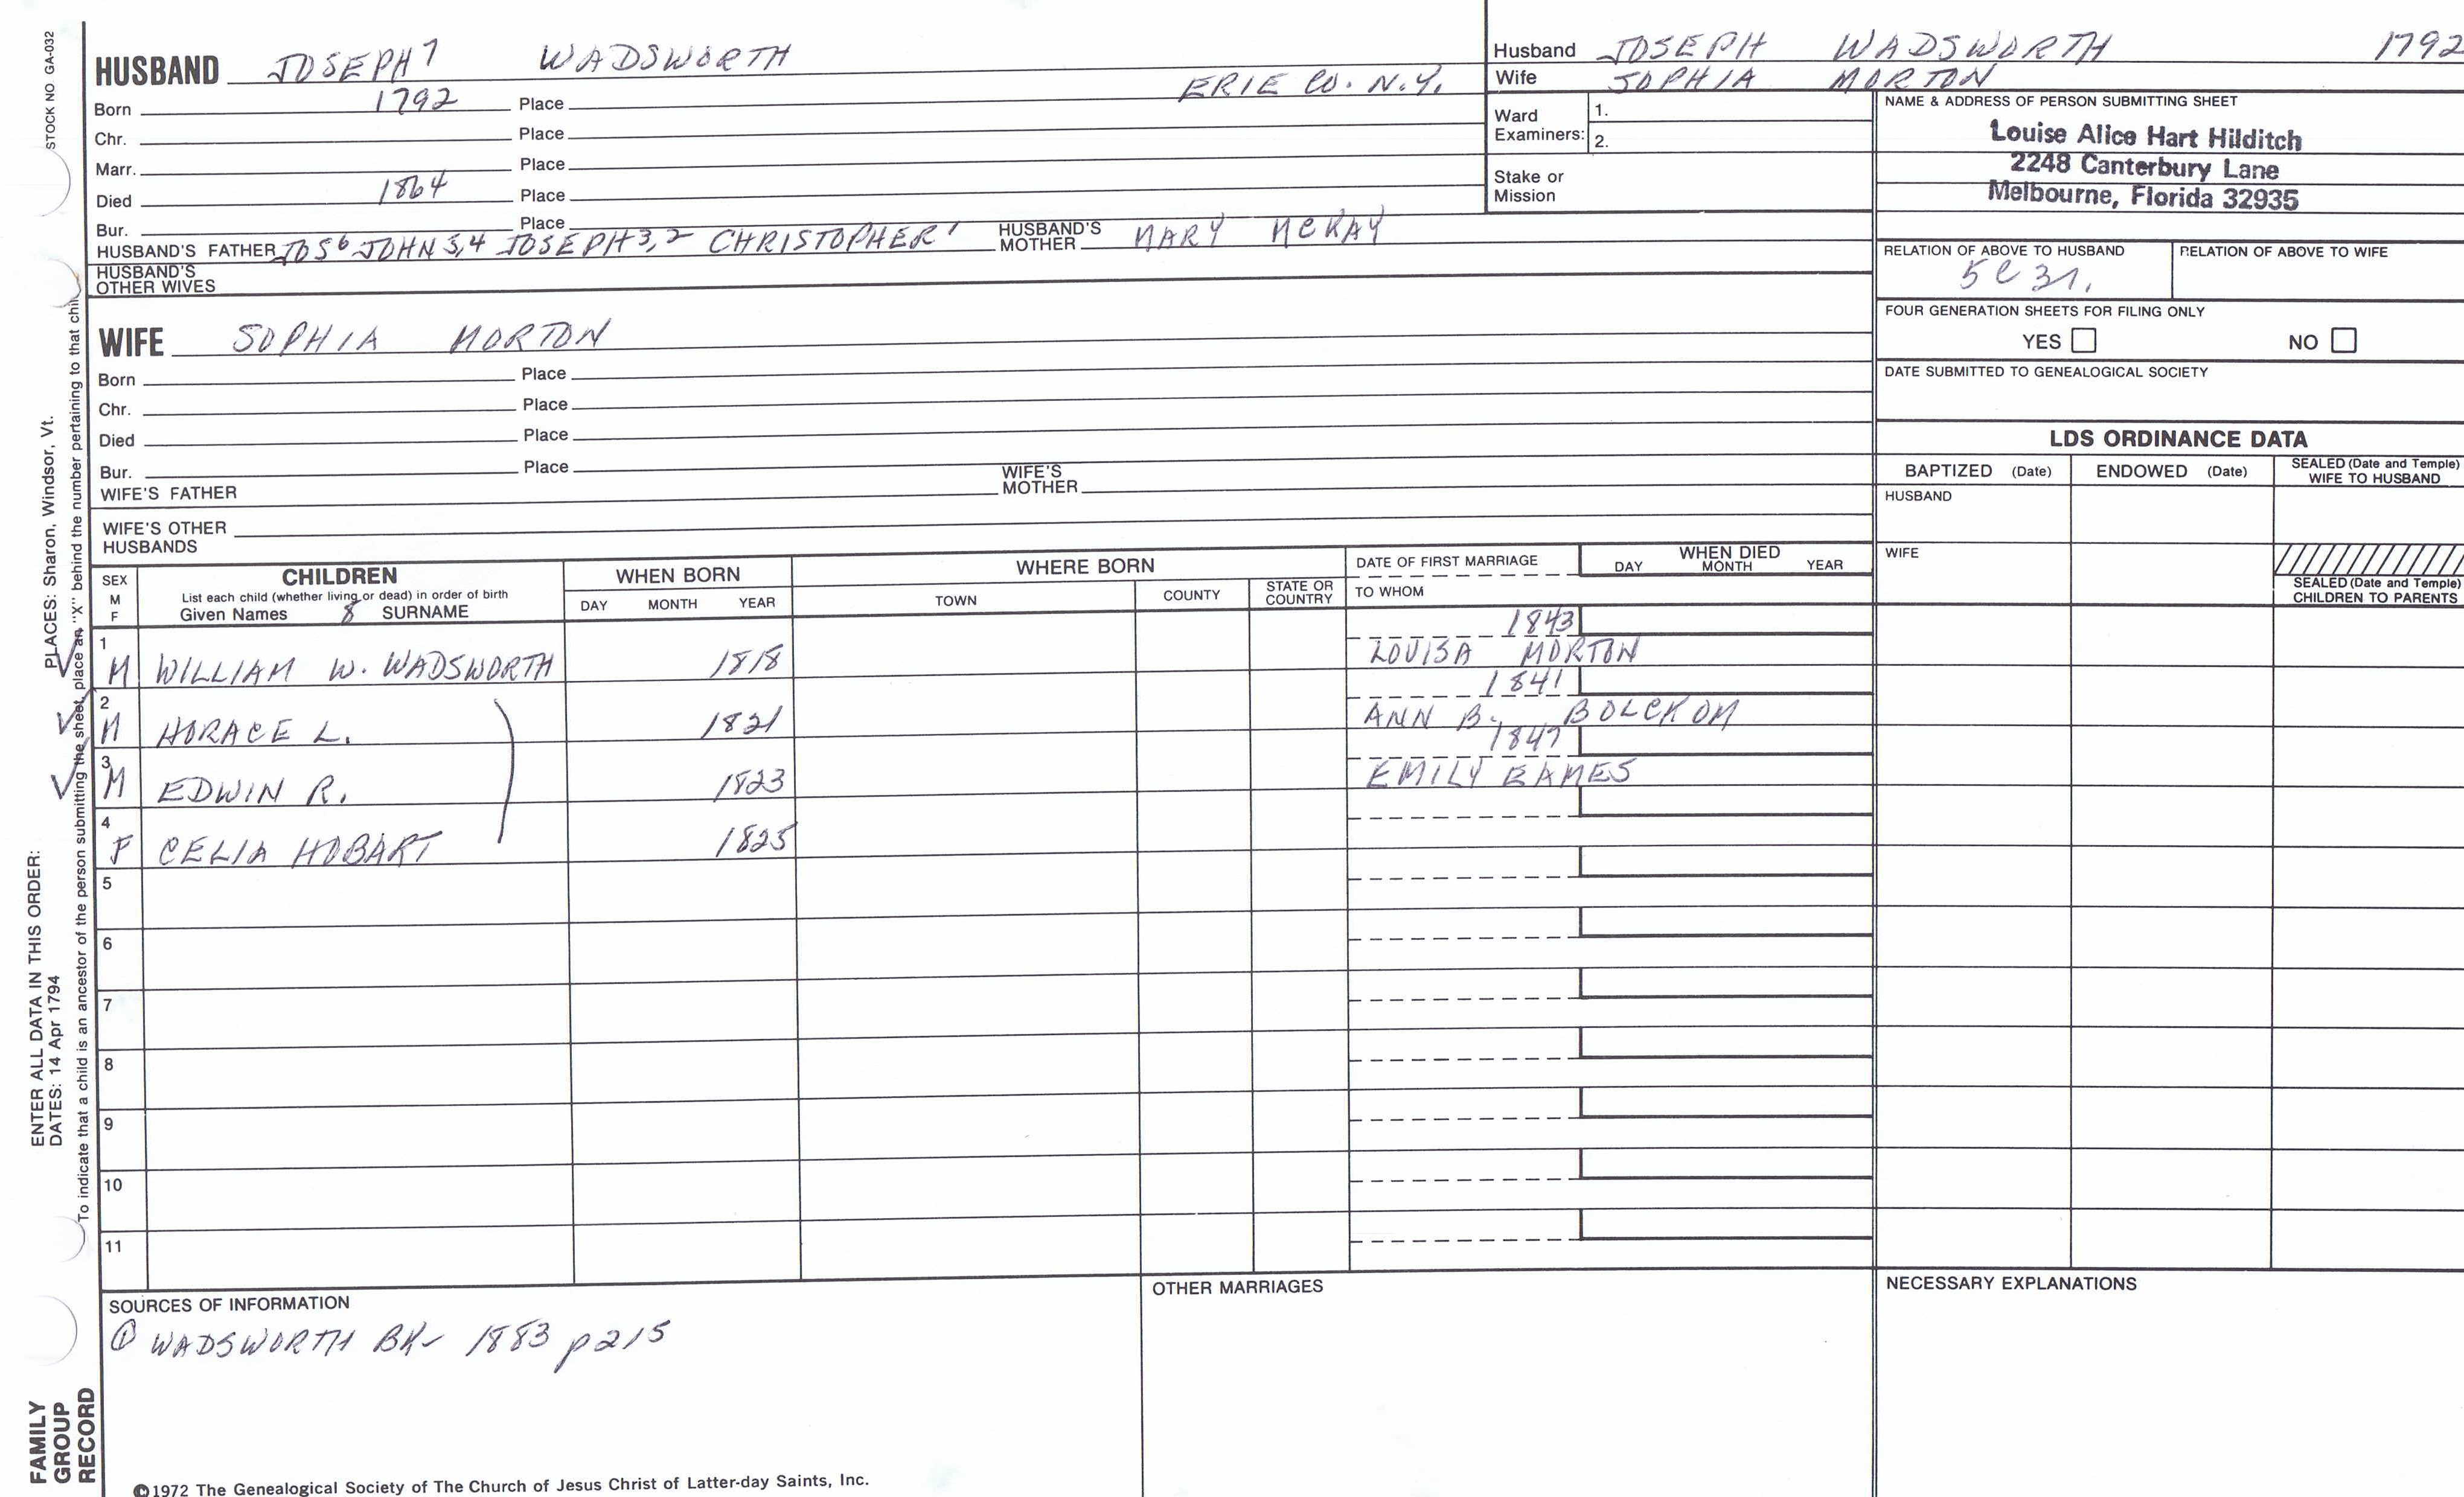 STOCK NO GA-032
HUSBAND JOSEPH7 WADSWORTH
Born 1792 Place ERIE CO. N.Y.
Chr. Place
Marr. Place
Died 1864 Place
Bur. Place
HUSBAND'S FATHER JOS6 JOHN 5,4 JOSEPH 3,2 CHRISTOPHER1 HUSBAND'S MOTHER MARY MCKAY
HUSBAND'S OTHER WIVES
Husband JOSEPH WADSWORTH 1792
Wife SOPHIA MORTON
Ward Examiners: 1.
2.
Stake or Mission
NAME & ADDRESS OF PERSON SUBMITTING SHEET
Louise Alice Hart Hilditch
2248 Canterbury Lane
Melbourne, Florida 32935
RELATION OF ABOVE TO HUSBAND RELATION OF ABOVE TO WIFE
5C 3r.
FOUR GENERATION SHEETS FOR FILING ONLY
YES NO
DATE SUBMITTED TO GENEALOGICAL SOCIETY
WIFE SOPHIA MORTON
Born Place
Chr. Place
Died Place
Bur. Place
WIFE'S FATHER WIFE'S MOTHER
WIFE'S OTHER HUSBANDS
LDS ORDINANCE DATA
BAPTIZED (Date) ENDOWED (Date) SEALED (Date and Temple) WIFE TO HUSBAND
HUSBAND
WIFE
SEALED (Date and Temple) CHILDREN TO PARENTS
SEX M F
CHILDREN
List each child (whether living or dead) in order of birth
Given Names 8 SURNAME
WHEN BORN
DAY MONTH YEAR
WHERE BORN
TOWN COUNTY STATE OR COUNTRY
DATE OF FIRST MARRIAGE
TO WHOM
WHEN DIED
DAY MONTH YEAR
1 M WILLIAM W. WADSWORTH 1818 1843
LOUISA MORTON
2 M HORACE L. 1821 1841
ANN B. BOLCKOM
3 M EDWIN R. 1823 1847
EMILY EAMES
4 F CELIA HOBART 1825
5
6
7
8
9
10
11
SOURCES OF INFORMATION
① WADSWORTH BK- 1883 p215
OTHER MARRIAGES
NECESSARY EXPLANATIONS
©1972 The Genealogical Society of The Church of Jesus Christ of Latter-day Saints, Inc.
FAMILY GROUP RECORD
ENTER ALL DATA IN THIS ORDER:
DATES: 14 Apr 1794 PLACES: Sharon, Windsor, Vt.
To indicate that a child is an ancestor of the person submitting the sheet, place an "X" behind the number pertaining to that chil